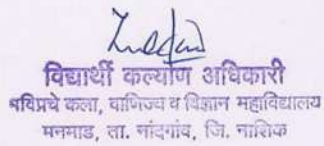 विद्यार्थी कल्याण अधिकारी
मविप्रचे कला, वाणिज्य व विज्ञान महाविद्यालय
मनमाड, ता. नांदगांव, जि. नाशिक